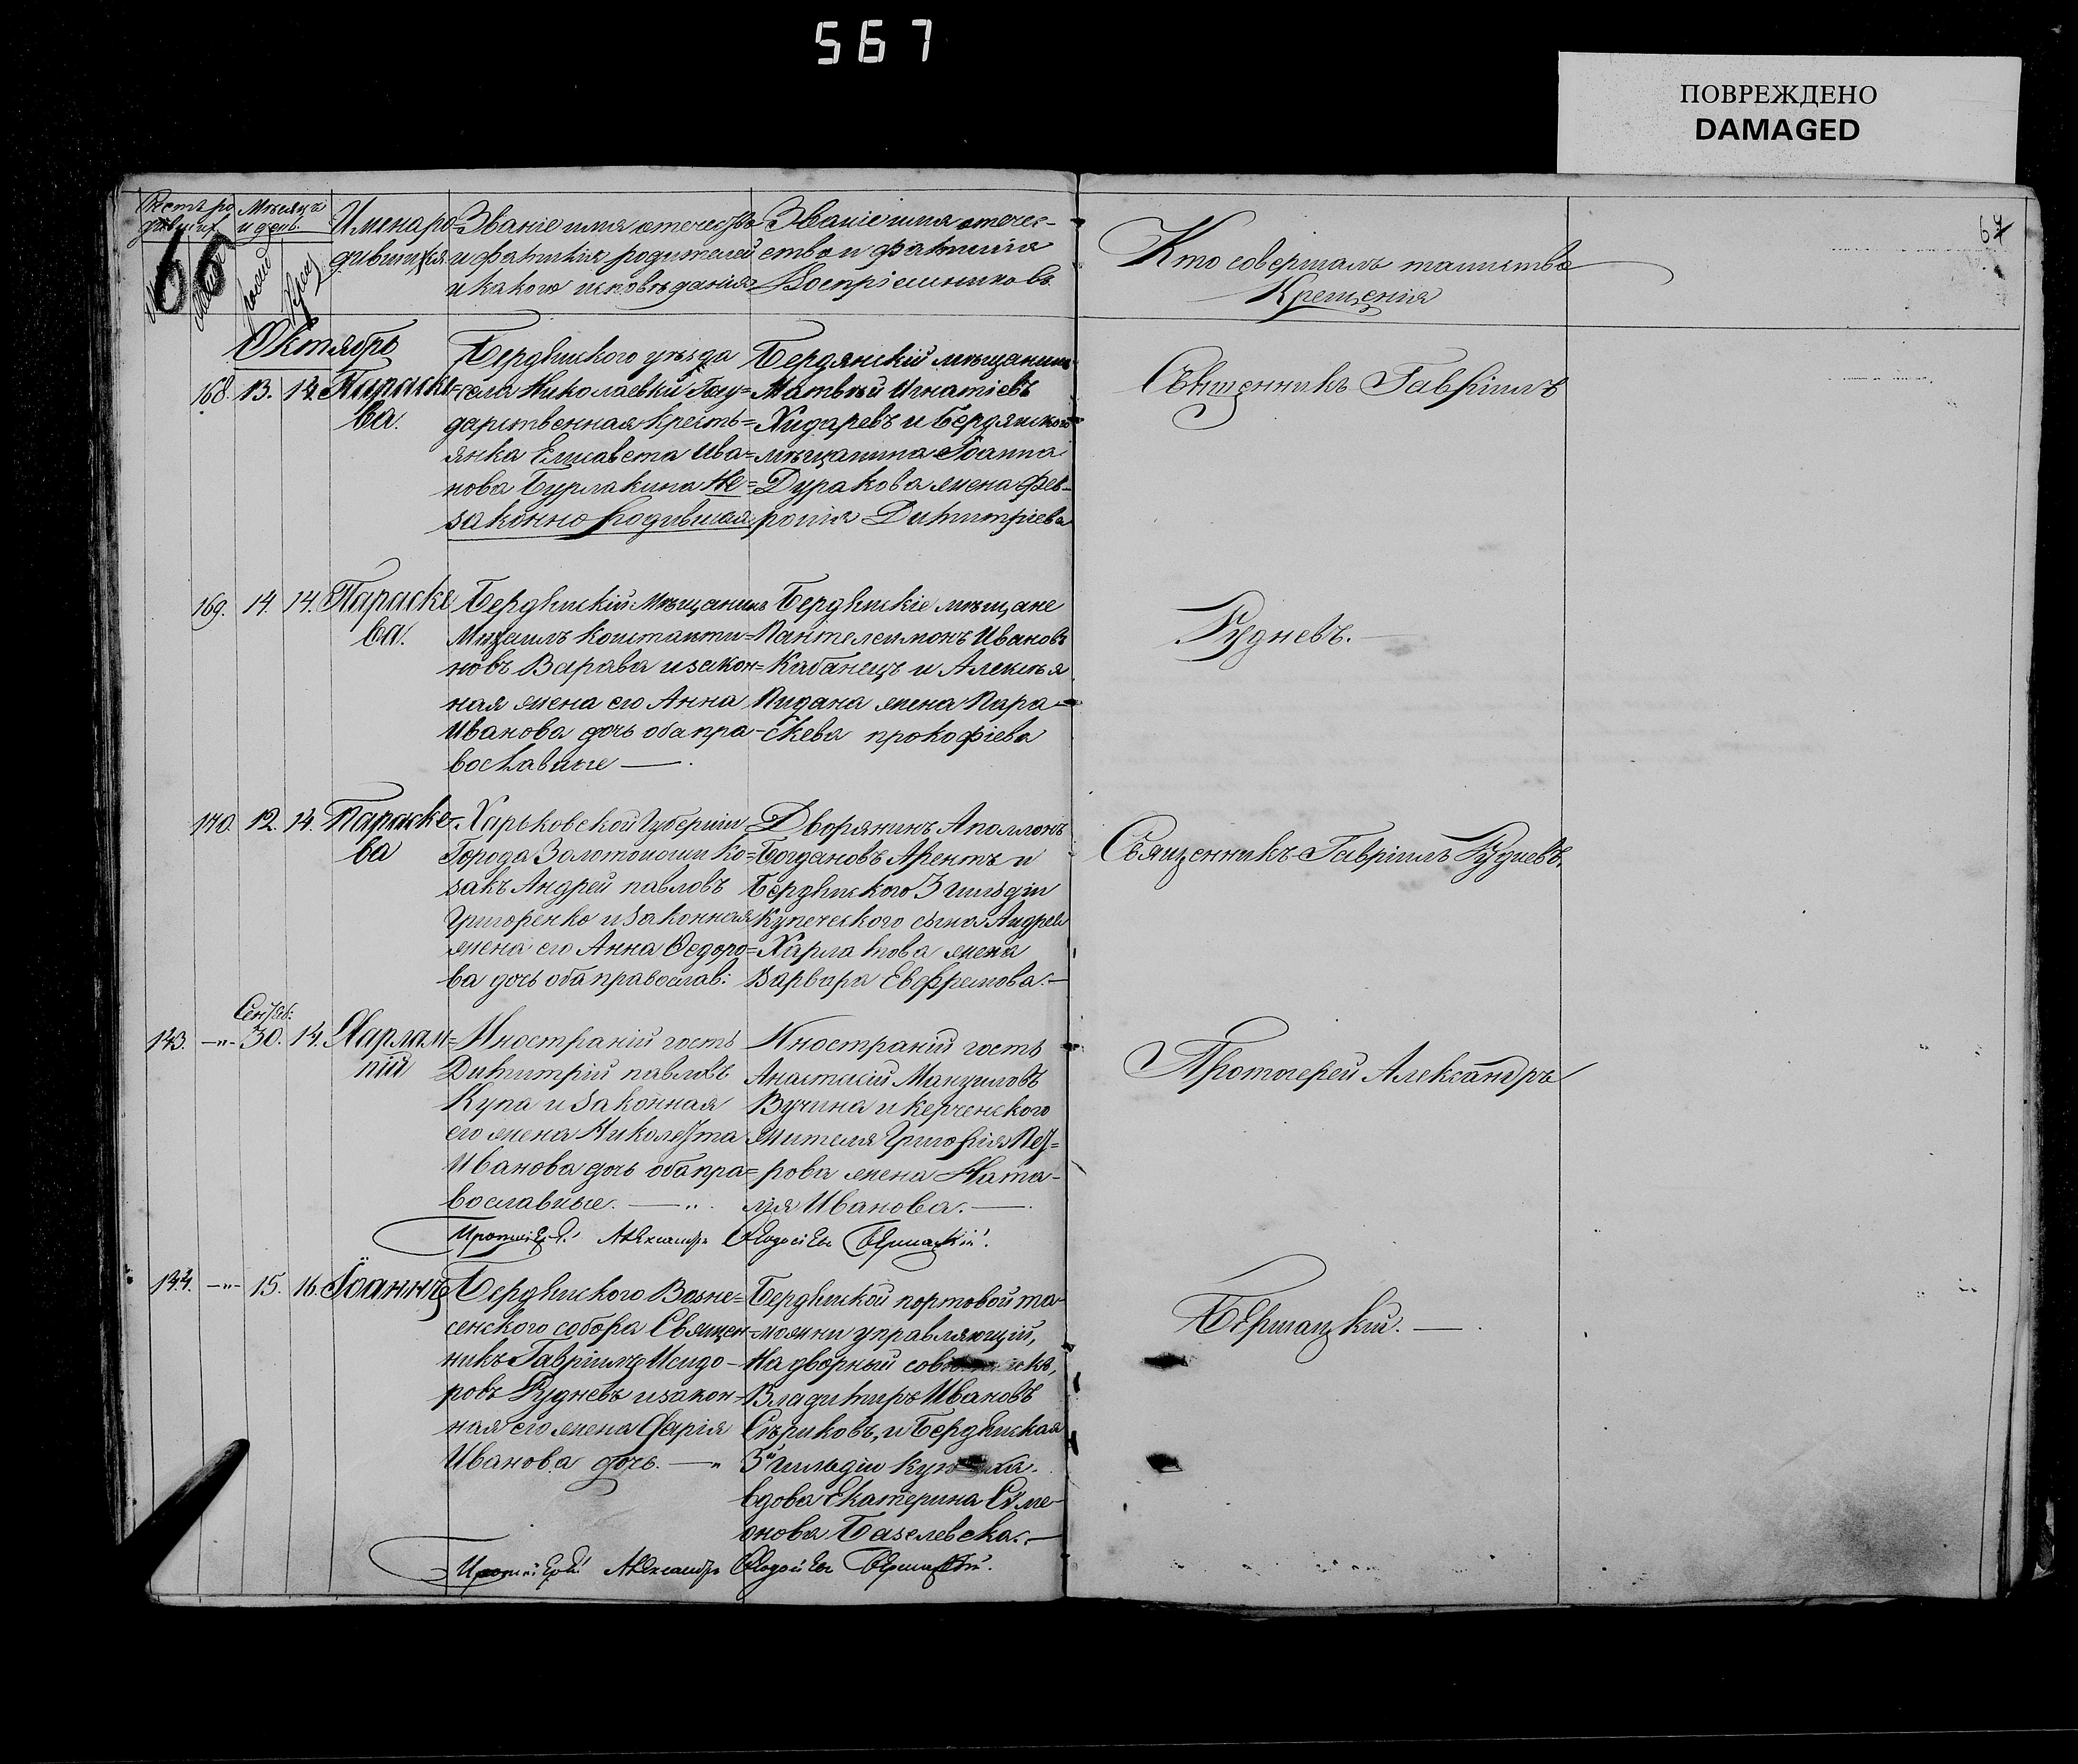 567
ПОВРЕЖДЕНО
DAMAGED
67
66
Мѣсяцъ
и день.
Имена ро-
дившихся.
Званіе имя отечество
и фамилія родителей
и какого исповѣданія
Званіе имя отечес-
тво и фамилія
Воспріемниковъ
Кто совершалъ таинство
Крещенія
Октябрь
168. 13. 14. Параске-
ва.
Бердянского уѣзда
села Николаевки Госу-
дарственная кресть-
янка Елисавета Ива-
нова Бурлакина не-
законно родившая
Бердянскій мѣщанинъ
Матвѣй Игнатіевъ
Хидаревъ и Бердянского
мѣщанина Іоанна
Дуракова жена Фев-
ронія Димитріева
Священникъ Гавріилъ
169. 14. 14. Параске
ва.
Бердянскій Мѣщанинъ
Михаилъ Константи-
новъ Варава и закон-
ная жена его Анна
Иванова дочь оба пра-
вославные — .
Бердянскіе мѣщане
Пантелеимонъ Ивановъ
Кабанецъ и Алексѣя
Пидана жена Пара-
скева прокофіева
Рудневъ. —
170. 12. 14. Параске-
ва
Харьковской Губерніи
Города Золотоноши ко-
закъ Андрей павловъ
Григоренко и законная
жена его Анна Ѳедоро-
ва дочь оба православ:
Дворянинъ Аполлонъ
Богдановъ Арентъ и
Бердянского 3 гильдіи
Купеческого сына Андрея
Харламова жена
Варвара Евфремова. —
Священникъ Гавріилъ Рудневъ.
Сентяб:
143. —"— 30. 14. Харлам-
пій
Иностраній гость
Димитрій павловъ
Купа и законная
его жена Николета
Иванова дочь оба пра-
вославные. — " .
Иностраній гость
Анастасій Мануиловъ
Вучина и керченского
жителя Григорія Пет-
рова жена Ната-
лія Иванова. — .
Протоіерей Александръ
Протоіерей Александръ Ѳеодосіевъ Бершацкій.
144. —"— 15. 16. Іоаннъ
Бердянского Возне-
сенского собора Священ-
никъ Гавріилъ Исидо-
ровъ Рудневъ и закон-
ная его жена Марія
Иванова дочь. — "
Бердянской портовой та-
можни управляющій,
Надворный
Владимиръ Ивановъ
Сѣриковъ, и Бердянская
3й гильдіи
вдова Екатерина Симе-
онова Базелевска. —
Бершацкій. — .
Протоіерей Александръ Ѳеодосіевъ Бершацкій.